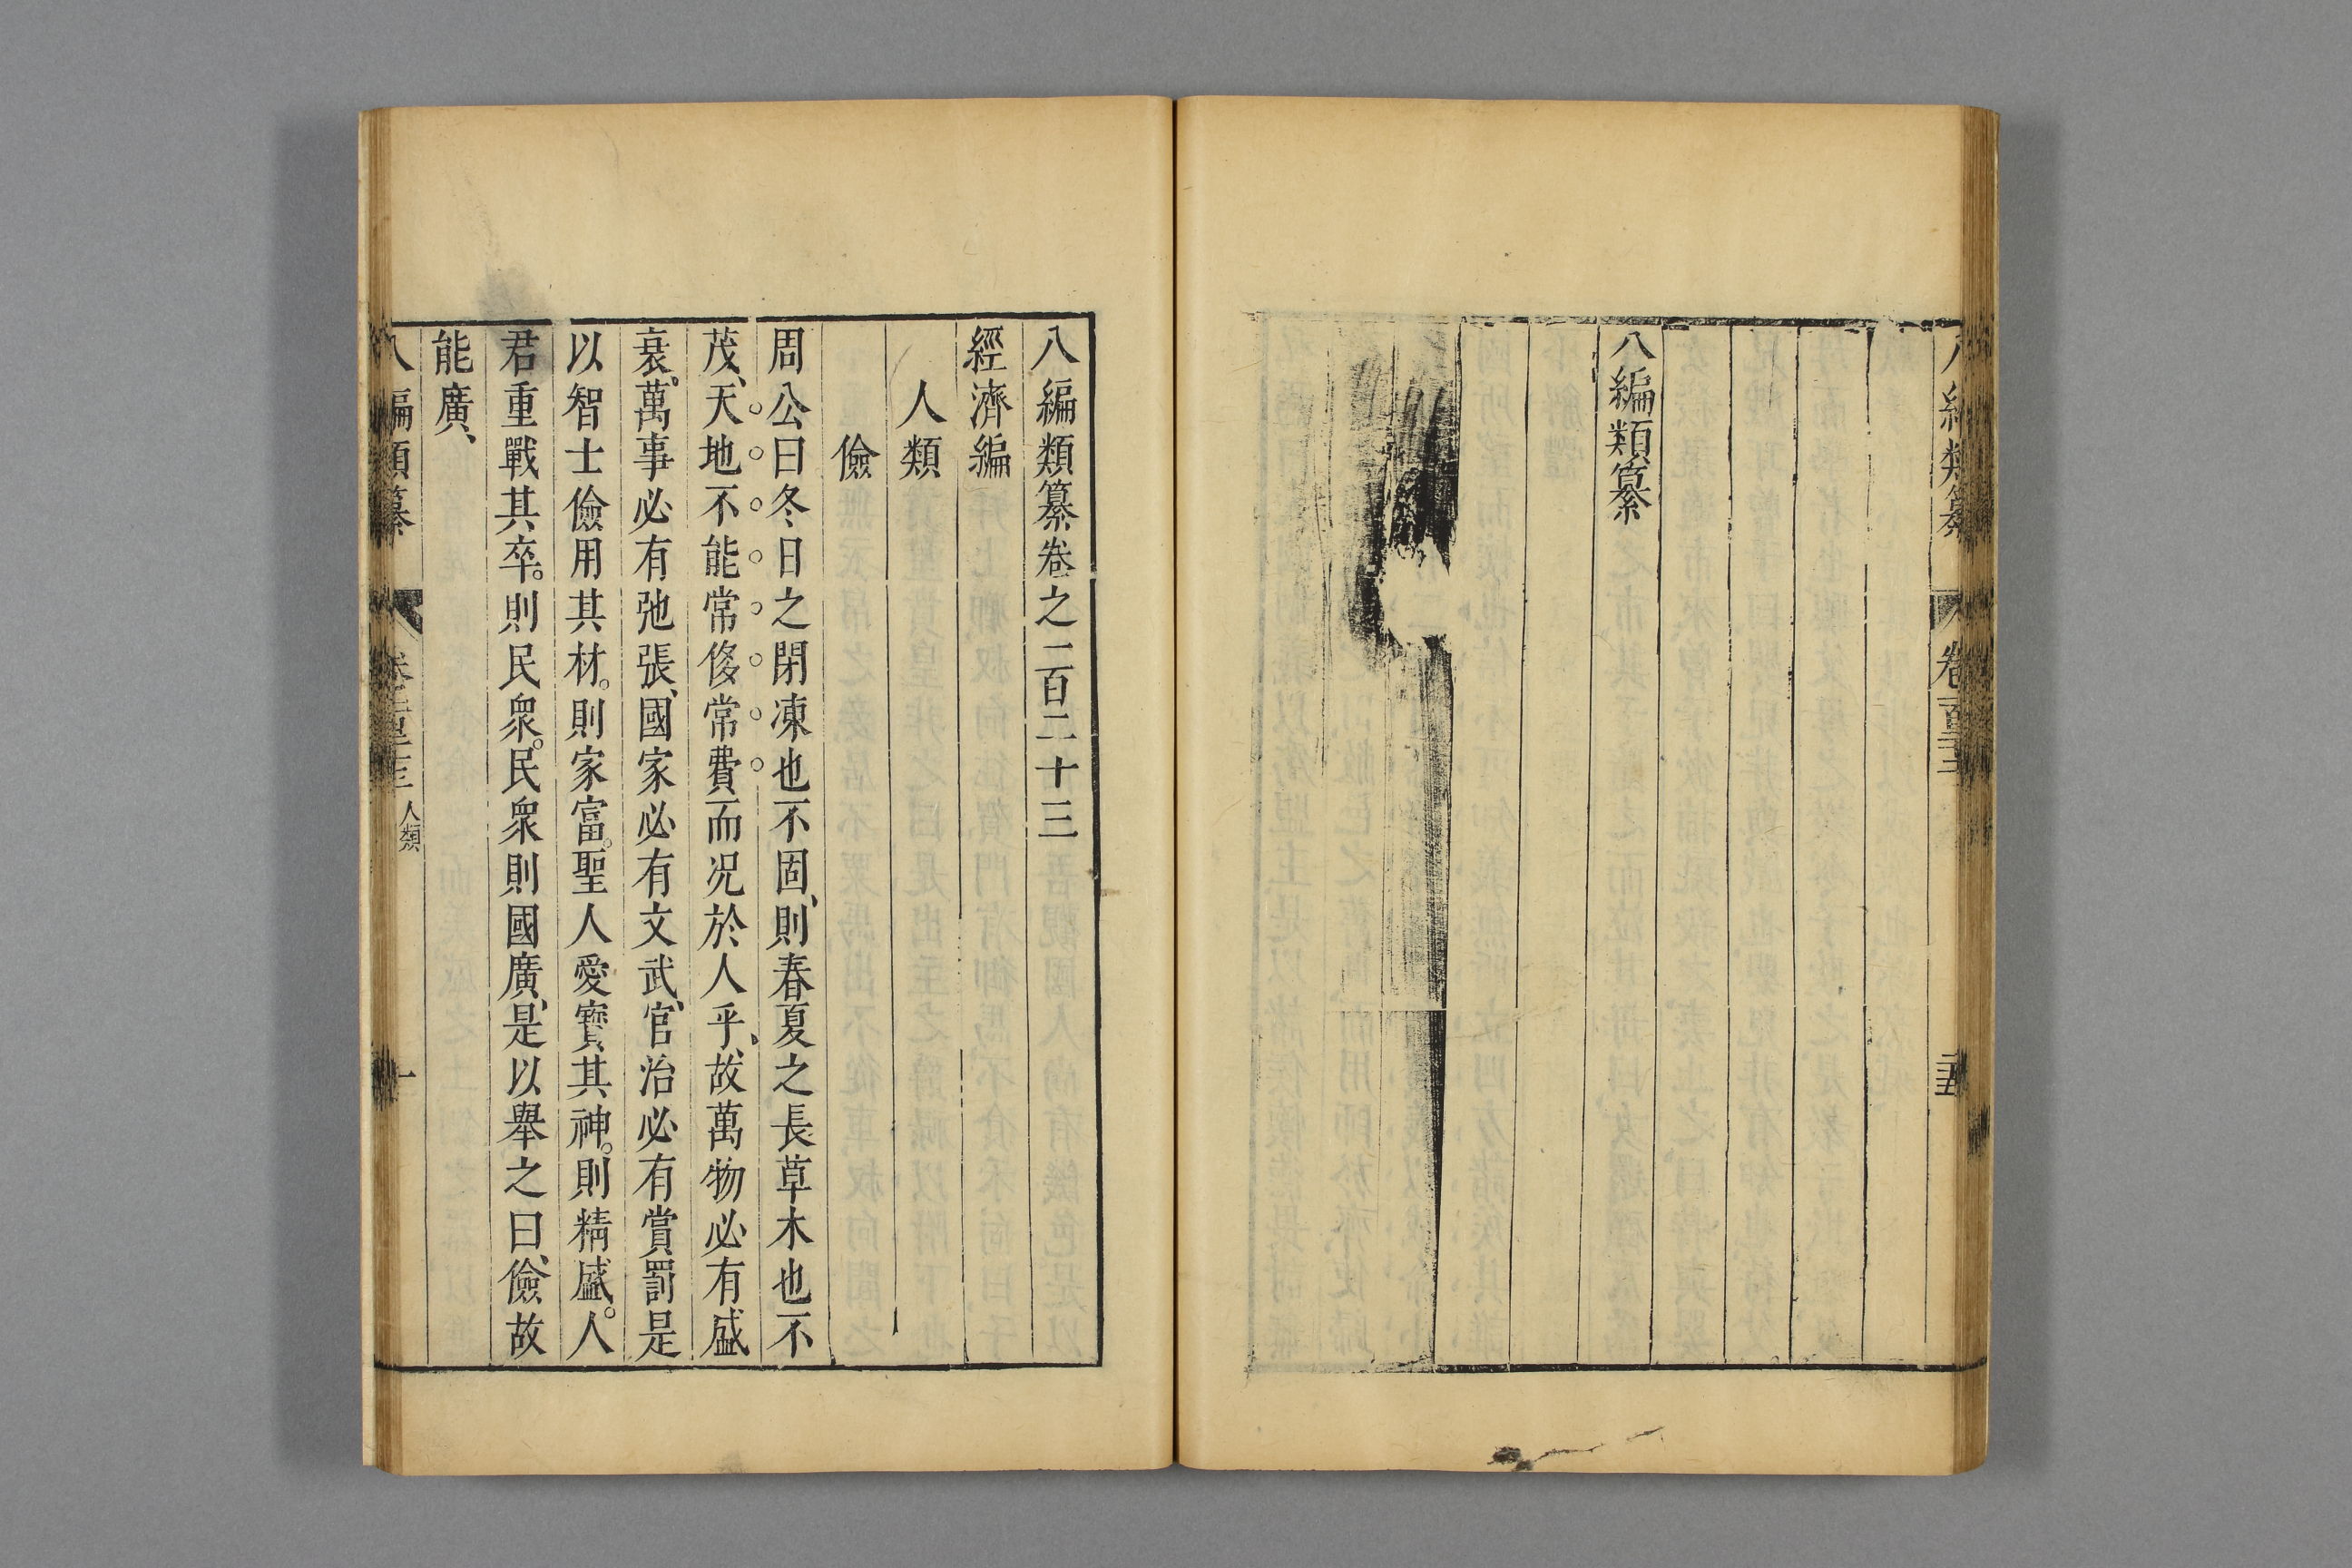 八編類纂
八編類纂卷之二百二十三
經濟編
人類
儉
周公曰冬日之閉凍也不固、則春夏之長草木也不
茂、天地不能常侈常費而况於人乎、故萬物必有盛
衰。萬事必有弛張、國家必有文武、官治必有賞罰是
以智士儉用其材。則家富。聖人愛寶其神。則精盛。人
君重戰其卒。則民衆。民衆則國廣、是以舉之曰、儉故
能廣、
人類
一